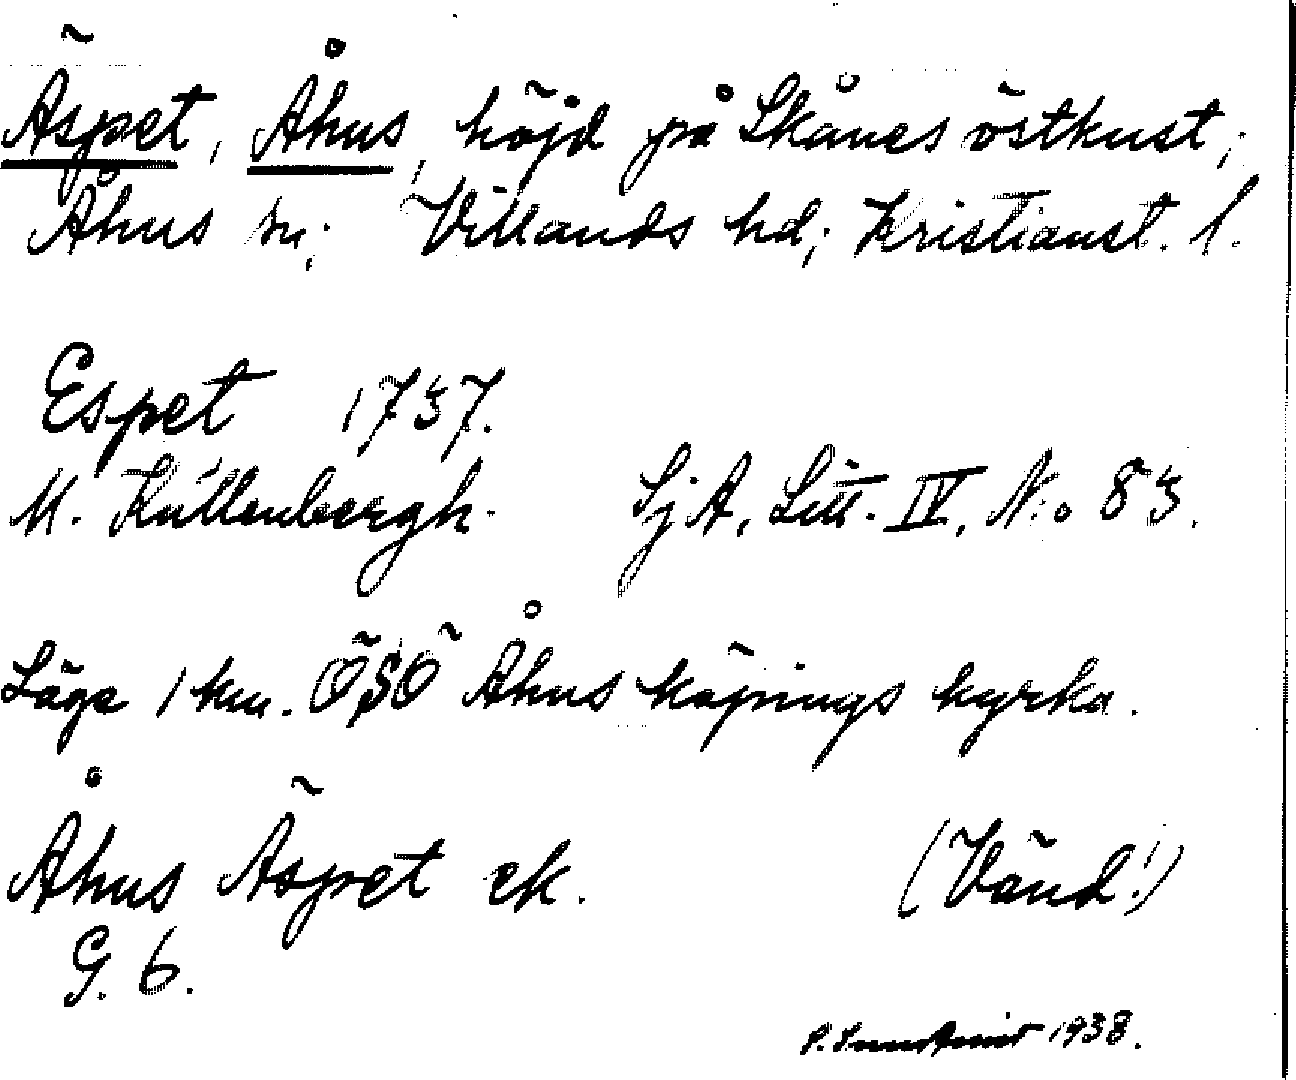 Äspet, Åhus, höjd på Skånes östkust;
Åhus sn; Villands hd; Kristianst. l.
Espet 1737.
M. Kullenbergh. SjA, Litt. IV, N:o 83.
Läge 1 km. ÖSÖ Åhus köpings kyrka.
Åhus Äspet ek. (Vänd!)
G. 6.
P. 1938.